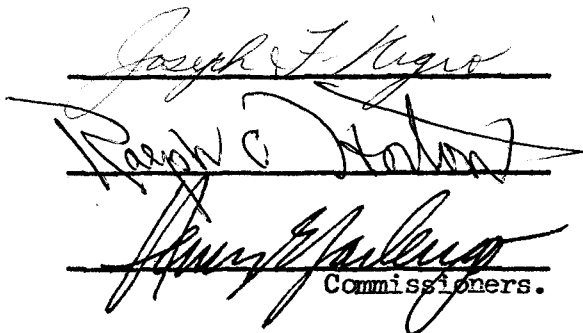 Joseph F. Nigro
Ralph C Horton
Henry E. Zarlengo
Commissioners.